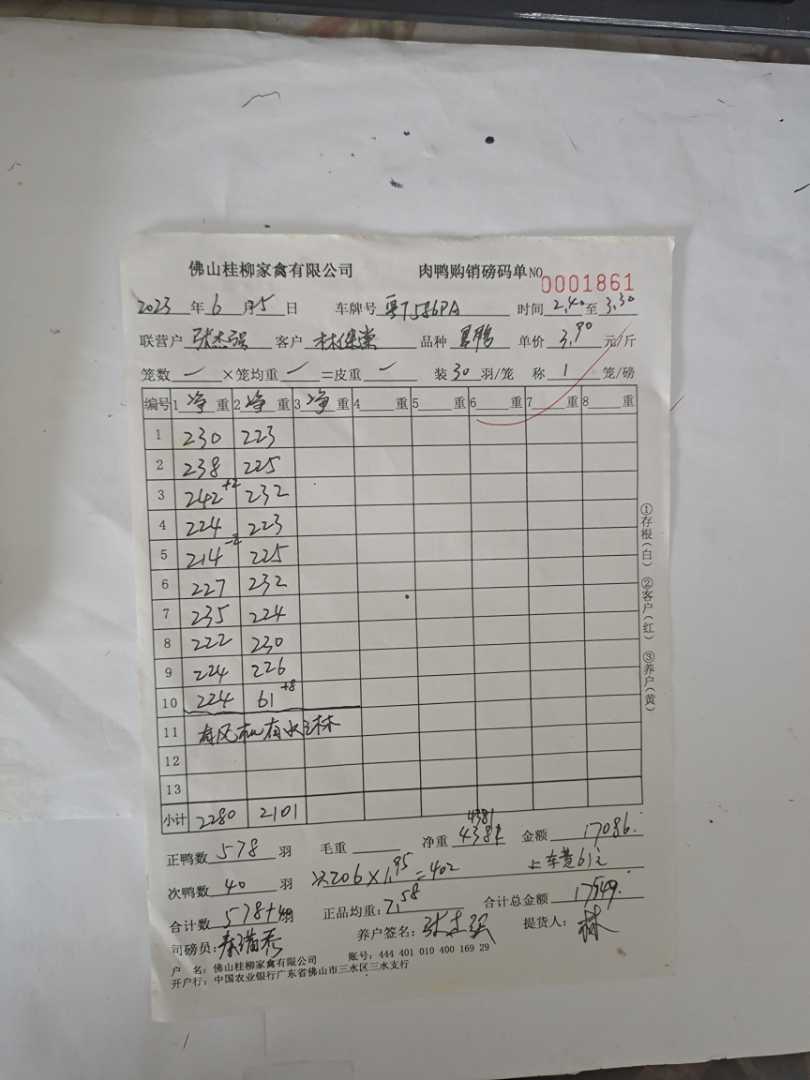 佛山桂柳家禽有限公司 肉鸭购销磅码单 NO 0001861
2023 年 6 月 5 日 车牌号 粤T586PA 时间 2.40 至 3.30
联营户 张杰强 客户 林保棠 品种 单价 3.90 元/斤
笼数 一 ×笼均重 一 =皮重 一 装 30 羽/笼 称 1 笼/磅
编号 1 净 重 2 净 重 3 净 重 4 重 5 重 6 重 7 重 8 重
1 230 223
2 238 225
3 242 +2 232
4 224 223
5 214 -2 225
6 227 232
7 235 224
8 222 230
9 224 226
10 224 61 +8
11
12
13
小计 2280 2101
①存根(白) ②客户(红) ③养户(黄)
4381
正鸭数 578 羽 毛重 净重 4381 金额 17086.
次鸭数 40 羽 次206×1.95=402 上车费61元
合计数 578+40 羽 正品均重: 7.58 合计总金额 17549.
司磅员: 养户签名: 张杰强 提货人: 林
户 名: 佛山桂柳家禽有限公司 账号: 444 401 010 400 169 29
开户行: 中国农业银行广东省佛山市三水区三水支行